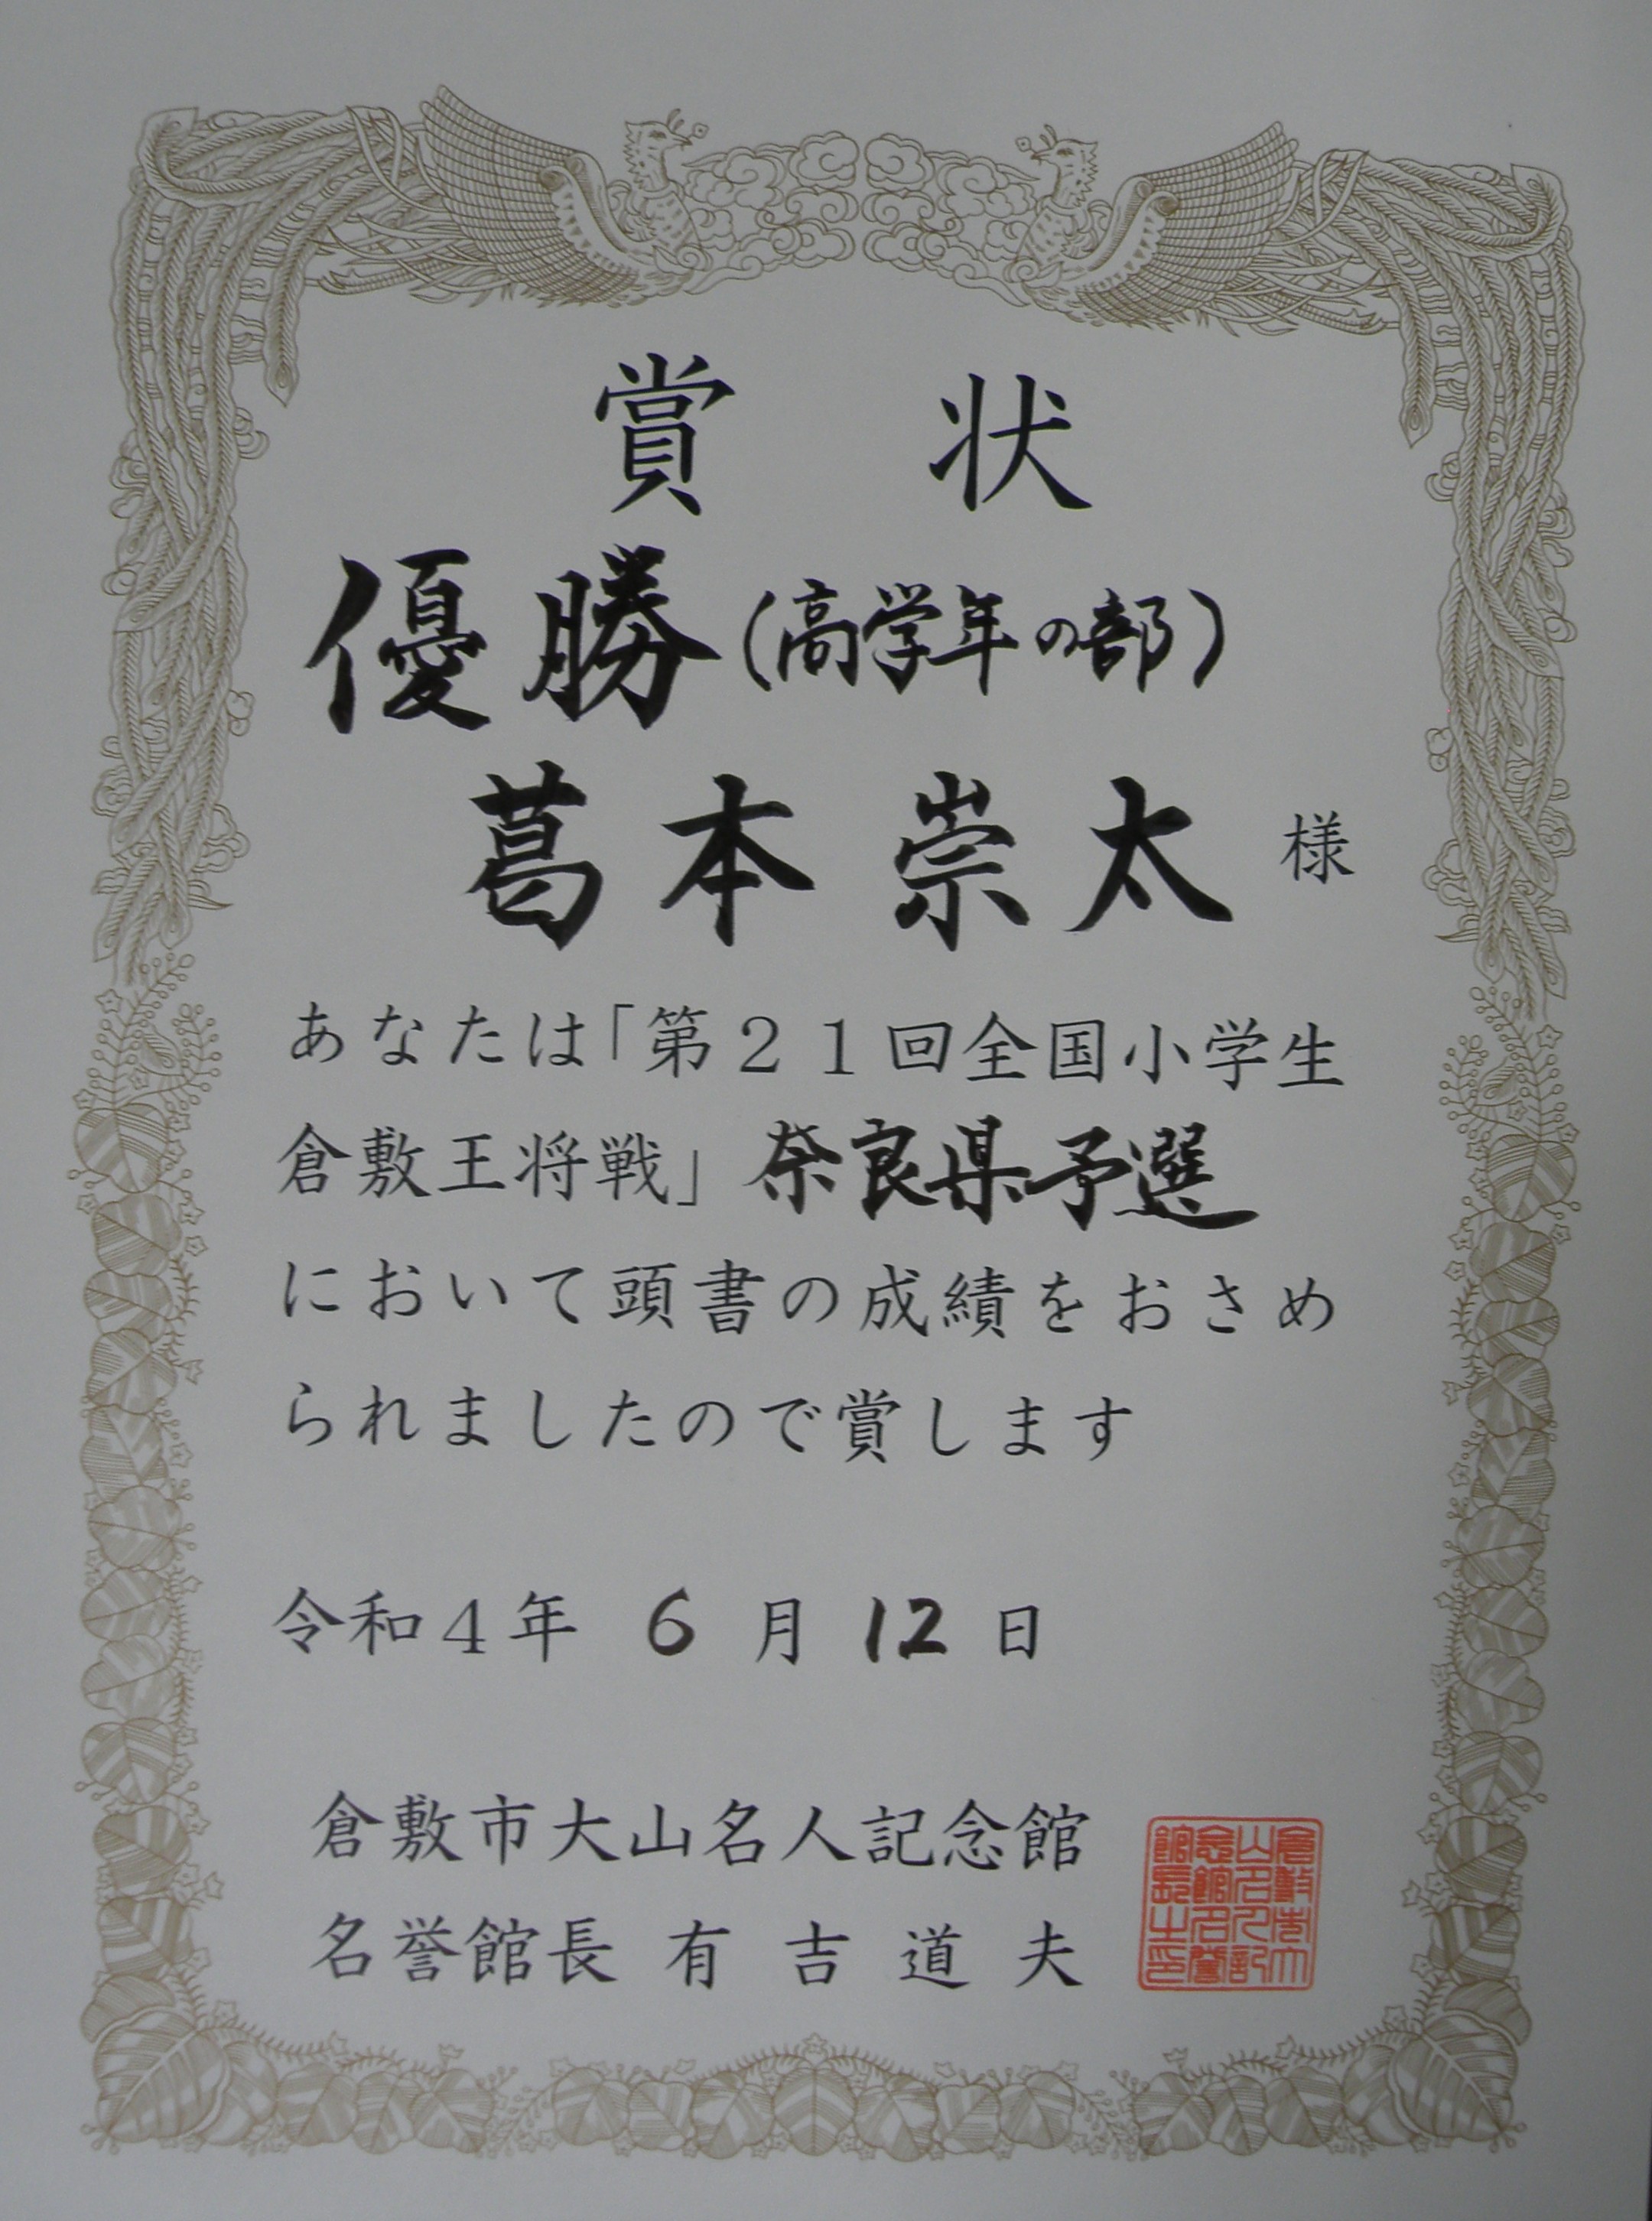 賞状
優勝(高学年の部)
葛本崇太様
あなたは「第21回全国小学生
倉敷王将戦」奈良県予選
において頭書の成績をおさめ
られましたので賞します
令和4年6月12日
倉敷市大山名人記念館
名誉館長 有吉道夫
倉敷市大
山名人記
念館名誉
館長之印